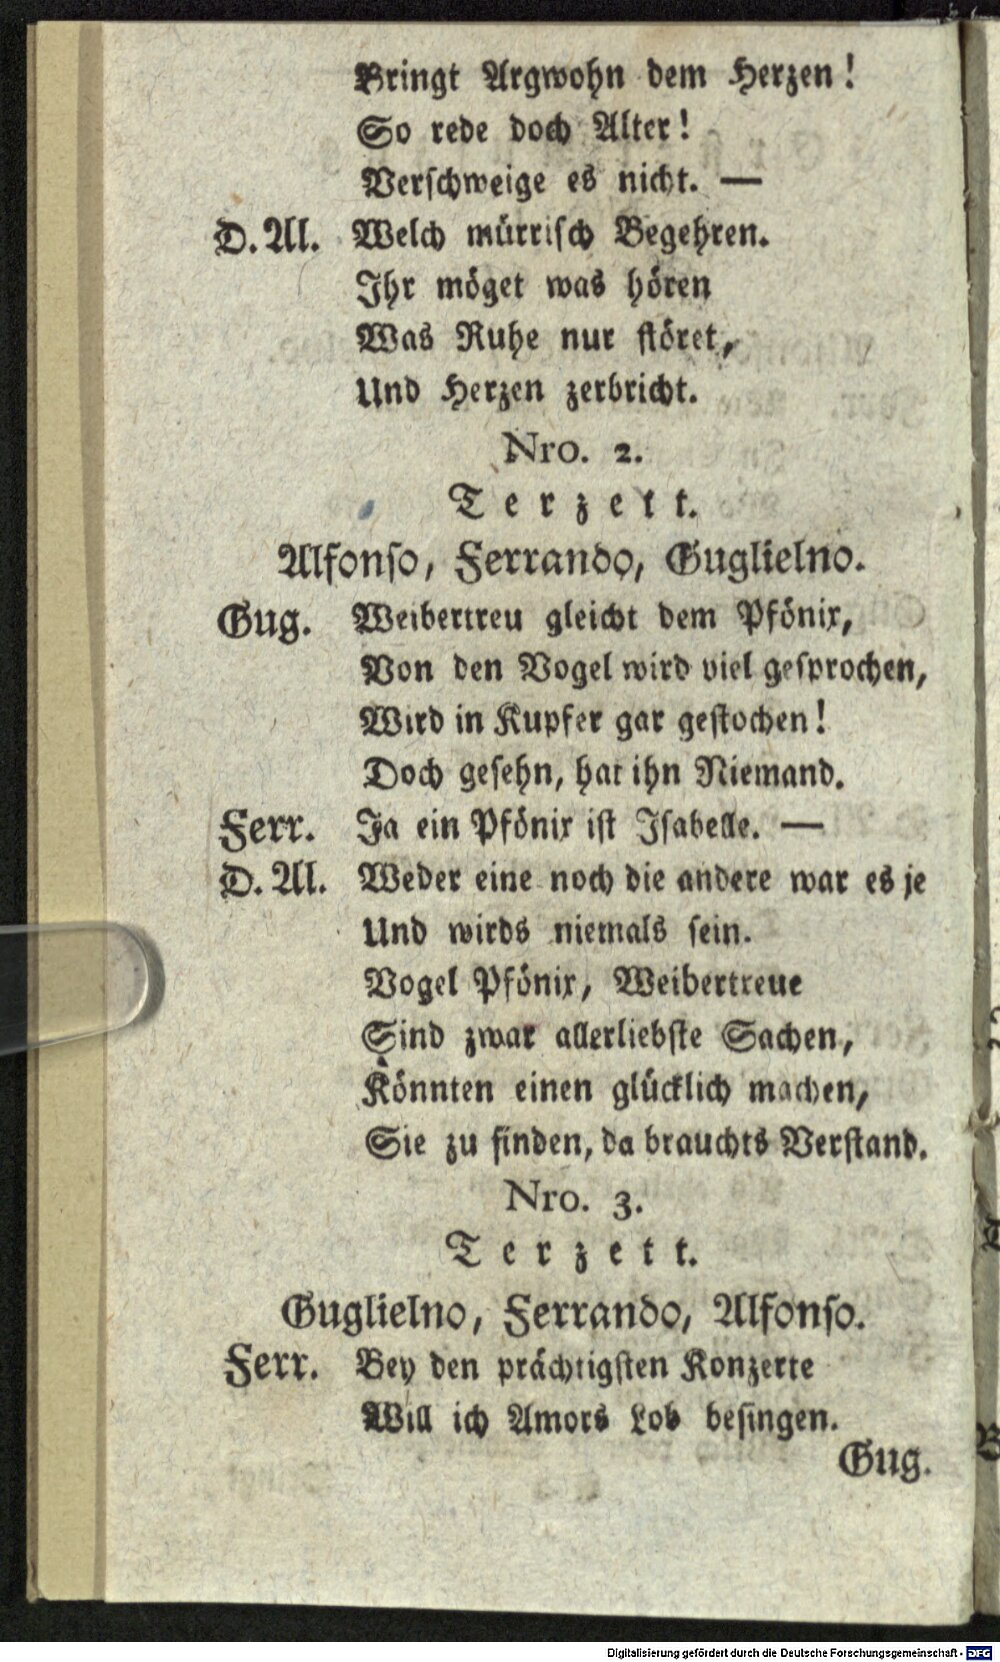 Bringt Argwohn dem Herzen!
So rede doch Alter!
Verschweige es nicht. —
D. Al. Welch mürrisch Begehren.
Ihr möget was hören
Was Ruhe nur störet,
Und Herzen zerbricht.
Nro. 2.
Terzett.
Alfonso, Ferrando, Guglielno.
Gug. Weibertreu gleicht dem Pfönix,
Von den Vogel wird viel gesprochen,
Wird in Kupfer gar gestochen!
Doch gesehn, hat ihn Niemand.
Ferr. Ja ein Pfönix ist Isabelle. —
D. Al. Weder eine noch die andere war es je
Und wirds niemals sein.
Vogel Pfönix, Weibertreue
Sind zwar allerliebste Sachen,
Könnten einen glücklich machen,
Sie zu finden, da brauchts Verstand.
Nro. 3.
Terzett.
Guglielno, Ferrando, Alfonso.
Ferr. Bey den prächtigsten Konzerte
Will ich Amors Lob besingen.
Gug.
Digitalisierung gefördert durch die Deutsche Forschungsgemeinschaft - DFG